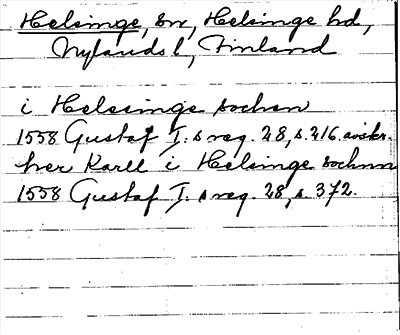 Helsinge, sn, Helsinge hd,
Nylands l, Finland
i Helsinge sochen
1558 Gustaf I:s reg. 28, s. 216. avskr.
her Karll i Helsinge sochnn
1558 Gustaf I:s reg. 28, s. 372.